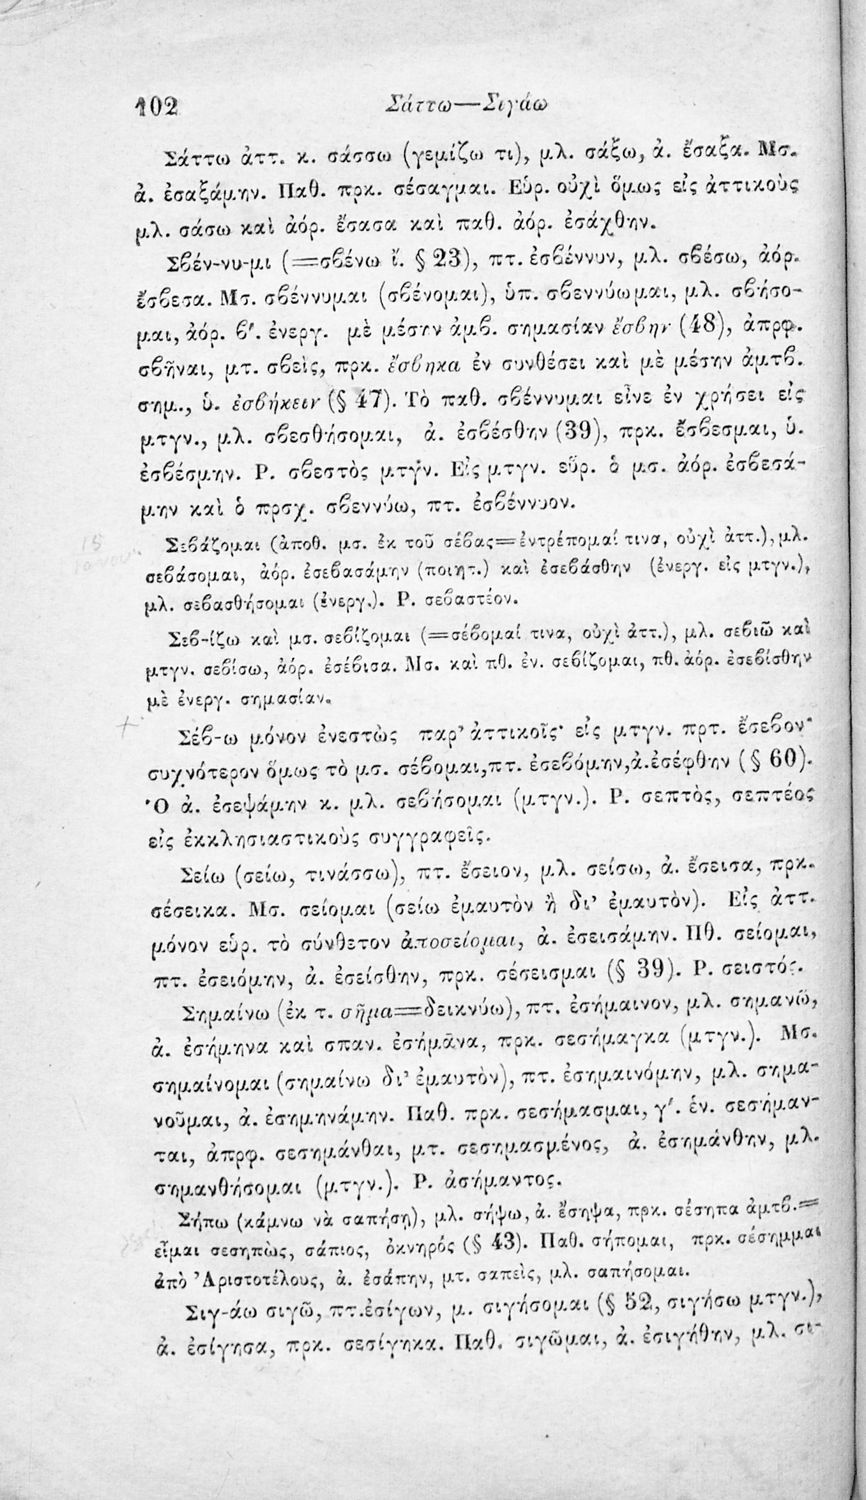 102 Σάττω—Σιγάω
Σάττω ἀττ. κ. σάσσω (γεμίζω τι), μλ. σάξω, ἀ. ἔσαξα. Μσ.
ἀ. ἐσαξάμην. Παθ. πρκ. σέσαγμαι. Εὑρ. οὐχὶ ὅμως εἰς ἀττικοὺς
μλ. σάσω καὶ ἀόρ. ἔσασα καὶ παθ. ἀόρ. ἐσάχθην.
Σβέν-νυ-μι (=σβένω ἴ. § 23), πτ. ἐσβέννυν, μλ. σβέσω, ἀόρ.
ἔσβεσα. Μσ. σβέννυμαι (σβένομαι), ὑπ. σβεννύωμαι, μλ. σβήσο-
μαι, ἀόρ. β′. ἐνεργ. μὲ μέσην ἀμβ. σημασίαν ἔσβην (48), ἀπρφ.
σβῆναι, μτ. σβεὶς, πρκ. ἔσβηκα ἐν συνθέσει καὶ μὲ μέσην ἀμτβ.
σημ., ὑ. ἐσβήκειν (§ 47). Τὸ παθ. σβέννυμαι εἶνε ἐν χρήσει εἰς
μτγν., μλ. σβεσθήσομαι, ἀ. ἐσβέσθην (39), πρκ. ἔσβεσμαι, ὑ.
ἐσβέσμην. Ρ. σβεστὸς μτγν. Εἰς μτγν. εὕρ. ὁ μσ. ἀόρ. ἐσβεσά-
μην καὶ ὁ πρσχ. σβεννύω, πτ. ἐσβέννυον.
Σεβάζομαι (ἀποθ. μσ. ἐκ τοῦ σέβας=ἐντρέπομαί τινα, οὐχὶ ἀττ.), μλ.
σεβάσομαι, ἀόρ. ἐσεβασάμην (ποιητ.) καὶ ἐσεβάσθην (ἐνεργ. εἰς μτγν.),
μλ. σεβασθήσομαι (ἐνεργ.). Ρ. σεβαστέον.
Σεβ-ίζω καὶ μσ. σεβίζομαι (=σέβομαί τινα, οὐχὶ ἀττ.), μλ. σεβιῶ καὶ
μτγν. σεβίσω, ἀόρ. ἐσέβισα. Μσ. καὶ πθ. ἐν. σεβίζομαι, πθ. ἀόρ. ἐσεβίσθην
μὲ ἐνεργ. σημασίαν.
Σέβ-ω μόνον ἐνεστὼς παρ’ ἀττικοῖς· εἰς μτγν. πρτ. ἔσεβον·
συχνότερον ὅμως τὸ μσ. σέβομαι, πτ. ἐσεβόμην, ἀ. ἐσέφθην (§ 60).
Ὁ ἀ. ἐσεψάμην κ. μλ. σεβήσομαι (μτγν.). Ρ. σεπτὸς, σεπτέος
εἰς ἐκκλησιαστικοὺς συγγραφεῖς.
Σείω (σείω, τινάσσω), πτ. ἔσειον, μλ. σείσω, ἀ. ἔσεισα, πρκ.
σέσεικα. Μσ. σείομαι (σείω ἐμαυτὸν ἢ δι’ ἐμαυτὸν). Εἰς ἀττ.
μόνον εὑρ. τὸ σύνθετον ἀποσείομαι, ἀ. ἐσεισάμην. Πθ. σείομαι,
πτ. ἐσειόμην, ἀ. ἐσείσθην, πρκ. σέσεισμαι (§ 39). Ρ. σειστός.
Σημαίνω (ἐκ τ. σῆμα=δεικνύω), πτ. ἐσήμαινον, μλ. σημανῶ,
ἀ. ἐσήμηνα καὶ σπαν. ἐσήμᾱνα, πρκ. σεσήμαγκα (μτγν.). Μσ.
σημαίνομαι (σημαίνω δι’ ἐμαυτὸν), πτ. ἐσημαινόμην, μλ. σημα-
νοῦμαι, ἀ. ἐσημηνάμην. Παθ. πρκ. σεσήμασμαι, γ′. ἑν. σεσήμαν-
ται, ἀπρφ. σεσημάνθαι, μτ. σεσημασμένος, ἀ. ἐσημάνθην, μλ.
σημανθήσομαι (μτγν.). Ρ. ἀσήμαντος.
Σήπω (κάμνω νὰ σαπήσῃ), μλ. σήψω, ἀ. ἔσηψα, πρκ. σέσηπα ἀμτβ.=
εἶμαι σεσηπὼς, σάπιος, ὀκνηρός (§ 43). Παθ. σήπομαι, πρκ. σέσημμαι
ἀπὸ Ἀριστοτέλους, ἀ. ἐσάπην, μτ. σαπεὶς, μλ. σαπήσομαι.
Σιγ-άω σιγῶ, πτ. ἐσίγων, μ. σιγήσομαι (§ 52, σιγήσω μτγν.),
ἀ. ἐσίγησα, πρκ. σεσίγηκα. Παθ. σιγῶμαι, ἀ. ἐσιγήθην, μλ. σι-